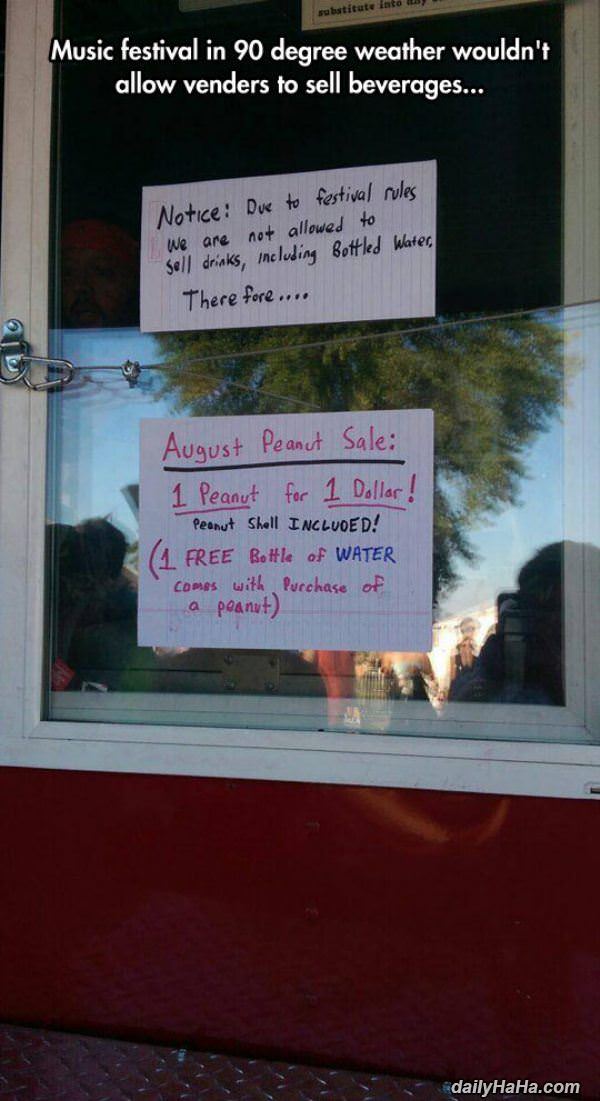 substitute into any
Music festival in 90 degree weather wouldn't
allow venders to sell beverages...
Notice: Due to festival rules
we are not allowed to
sell drinks, including Bottled Water.
Therefore....
August Peanut Sale:
1 Peanut for 1 Dollar!
Peanut Shell INCLUDED!
(1 FREE Bottle of WATER
comes with Purchase of
a peanut)
dailyHaHa.com